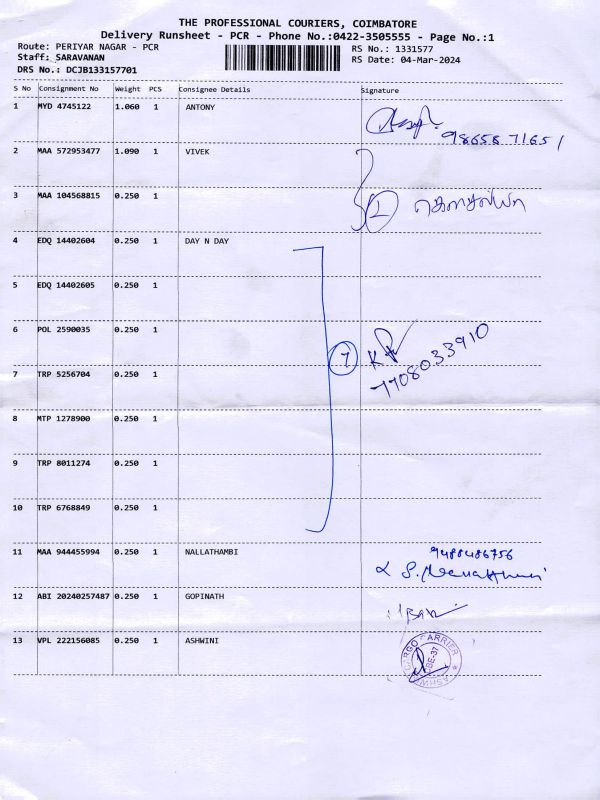 THE PROFESSIONAL COURIERS, COIMBATORE
Delivery Runsheet - PCR - Phone No.:0422-3505555 - Page No.:1
Route: PERIYAR NAGAR - PCR RS No.: 1331577
Staff: SARAVANAN RS Date: 04-Mar-2024
DRS No.: DCJB133157701
S No Consignment No Weight PCS Consignee Details Signature
1 MYD 4745122 1.060 1 ANTONY
9865871651
2 MAA 572953477 1.090 1 VIVEK
3 MAA 104568815 0.250 1
2
4 EDQ 14402604 0.250 1 DAY N DAY
5 EDQ 14402605 0.250 1
6 POL 2590035 0.250 1
7
7708033910
7 TRP 5256704 0.250 1
8 MTP 1278900 0.250 1
9 TRP 8011274 0.250 1
10 TRP 6768849 0.250 1
11 MAA 944455994 0.250 1 NALLATHAMBI
9488486756
12 ABI 20240257487 0.250 1 GOPINATH
13 VPL 222156085 0.250 1 ASHWINI
CARGO CARRIER